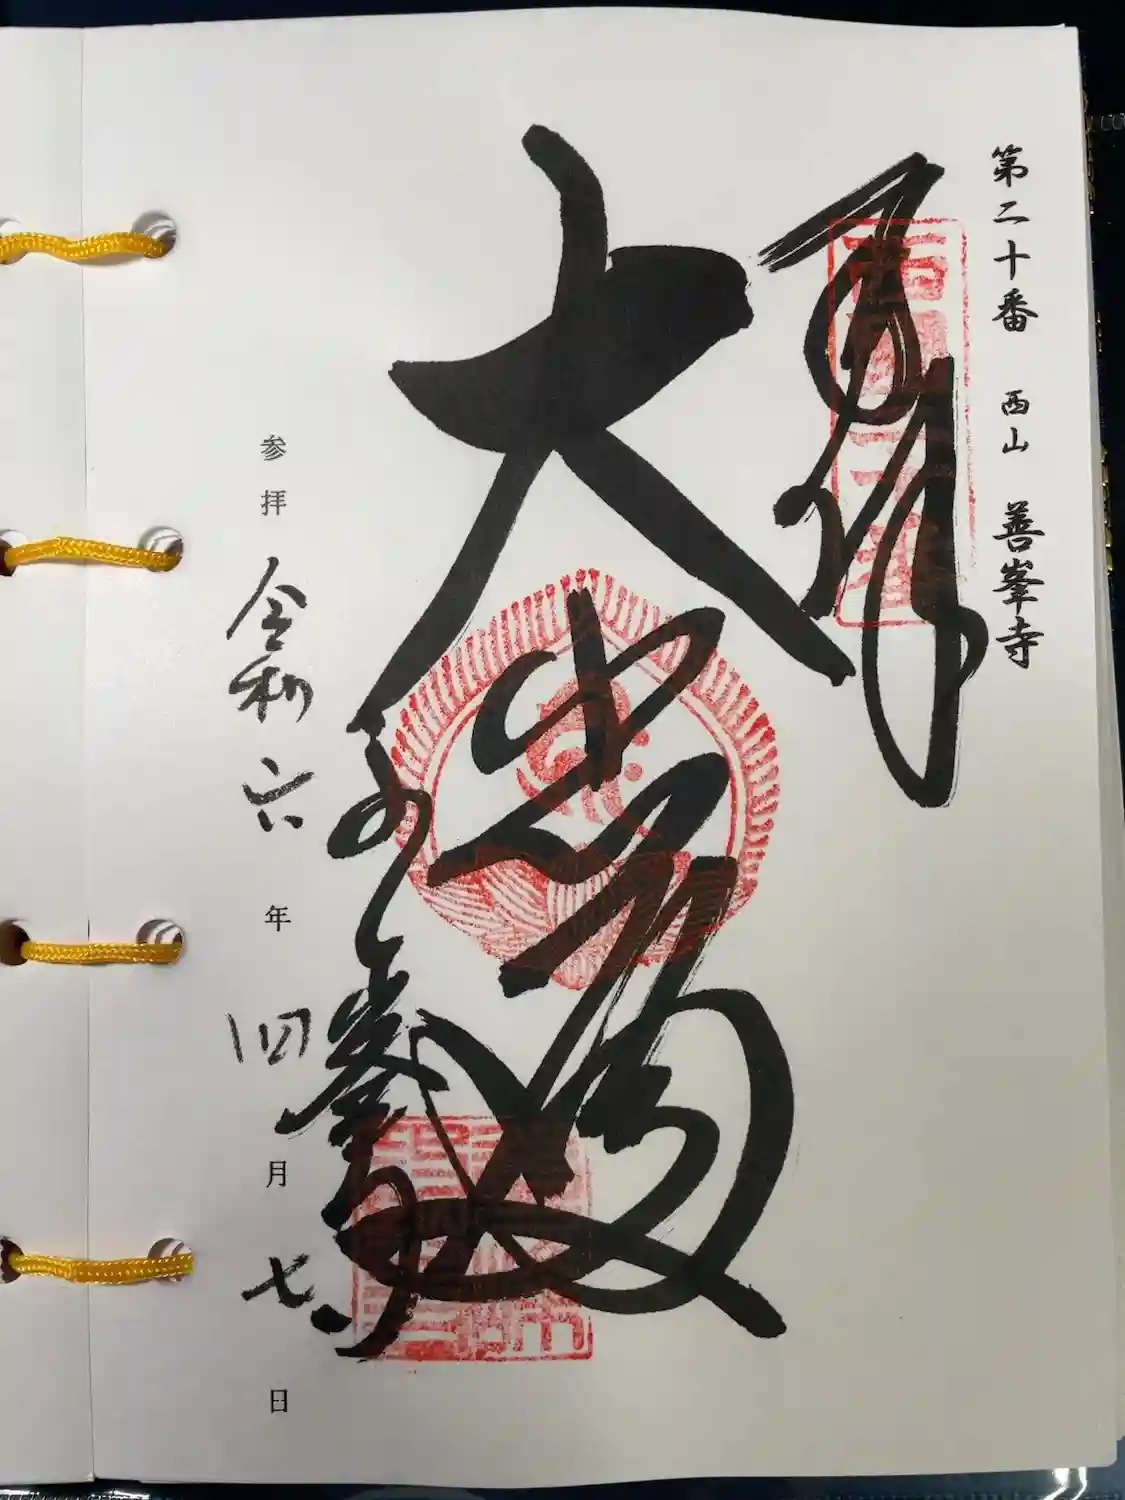 第二十番 西山 善峯寺
奉拝
大悲殿
善峯寺
参拝 令和六年四月七日